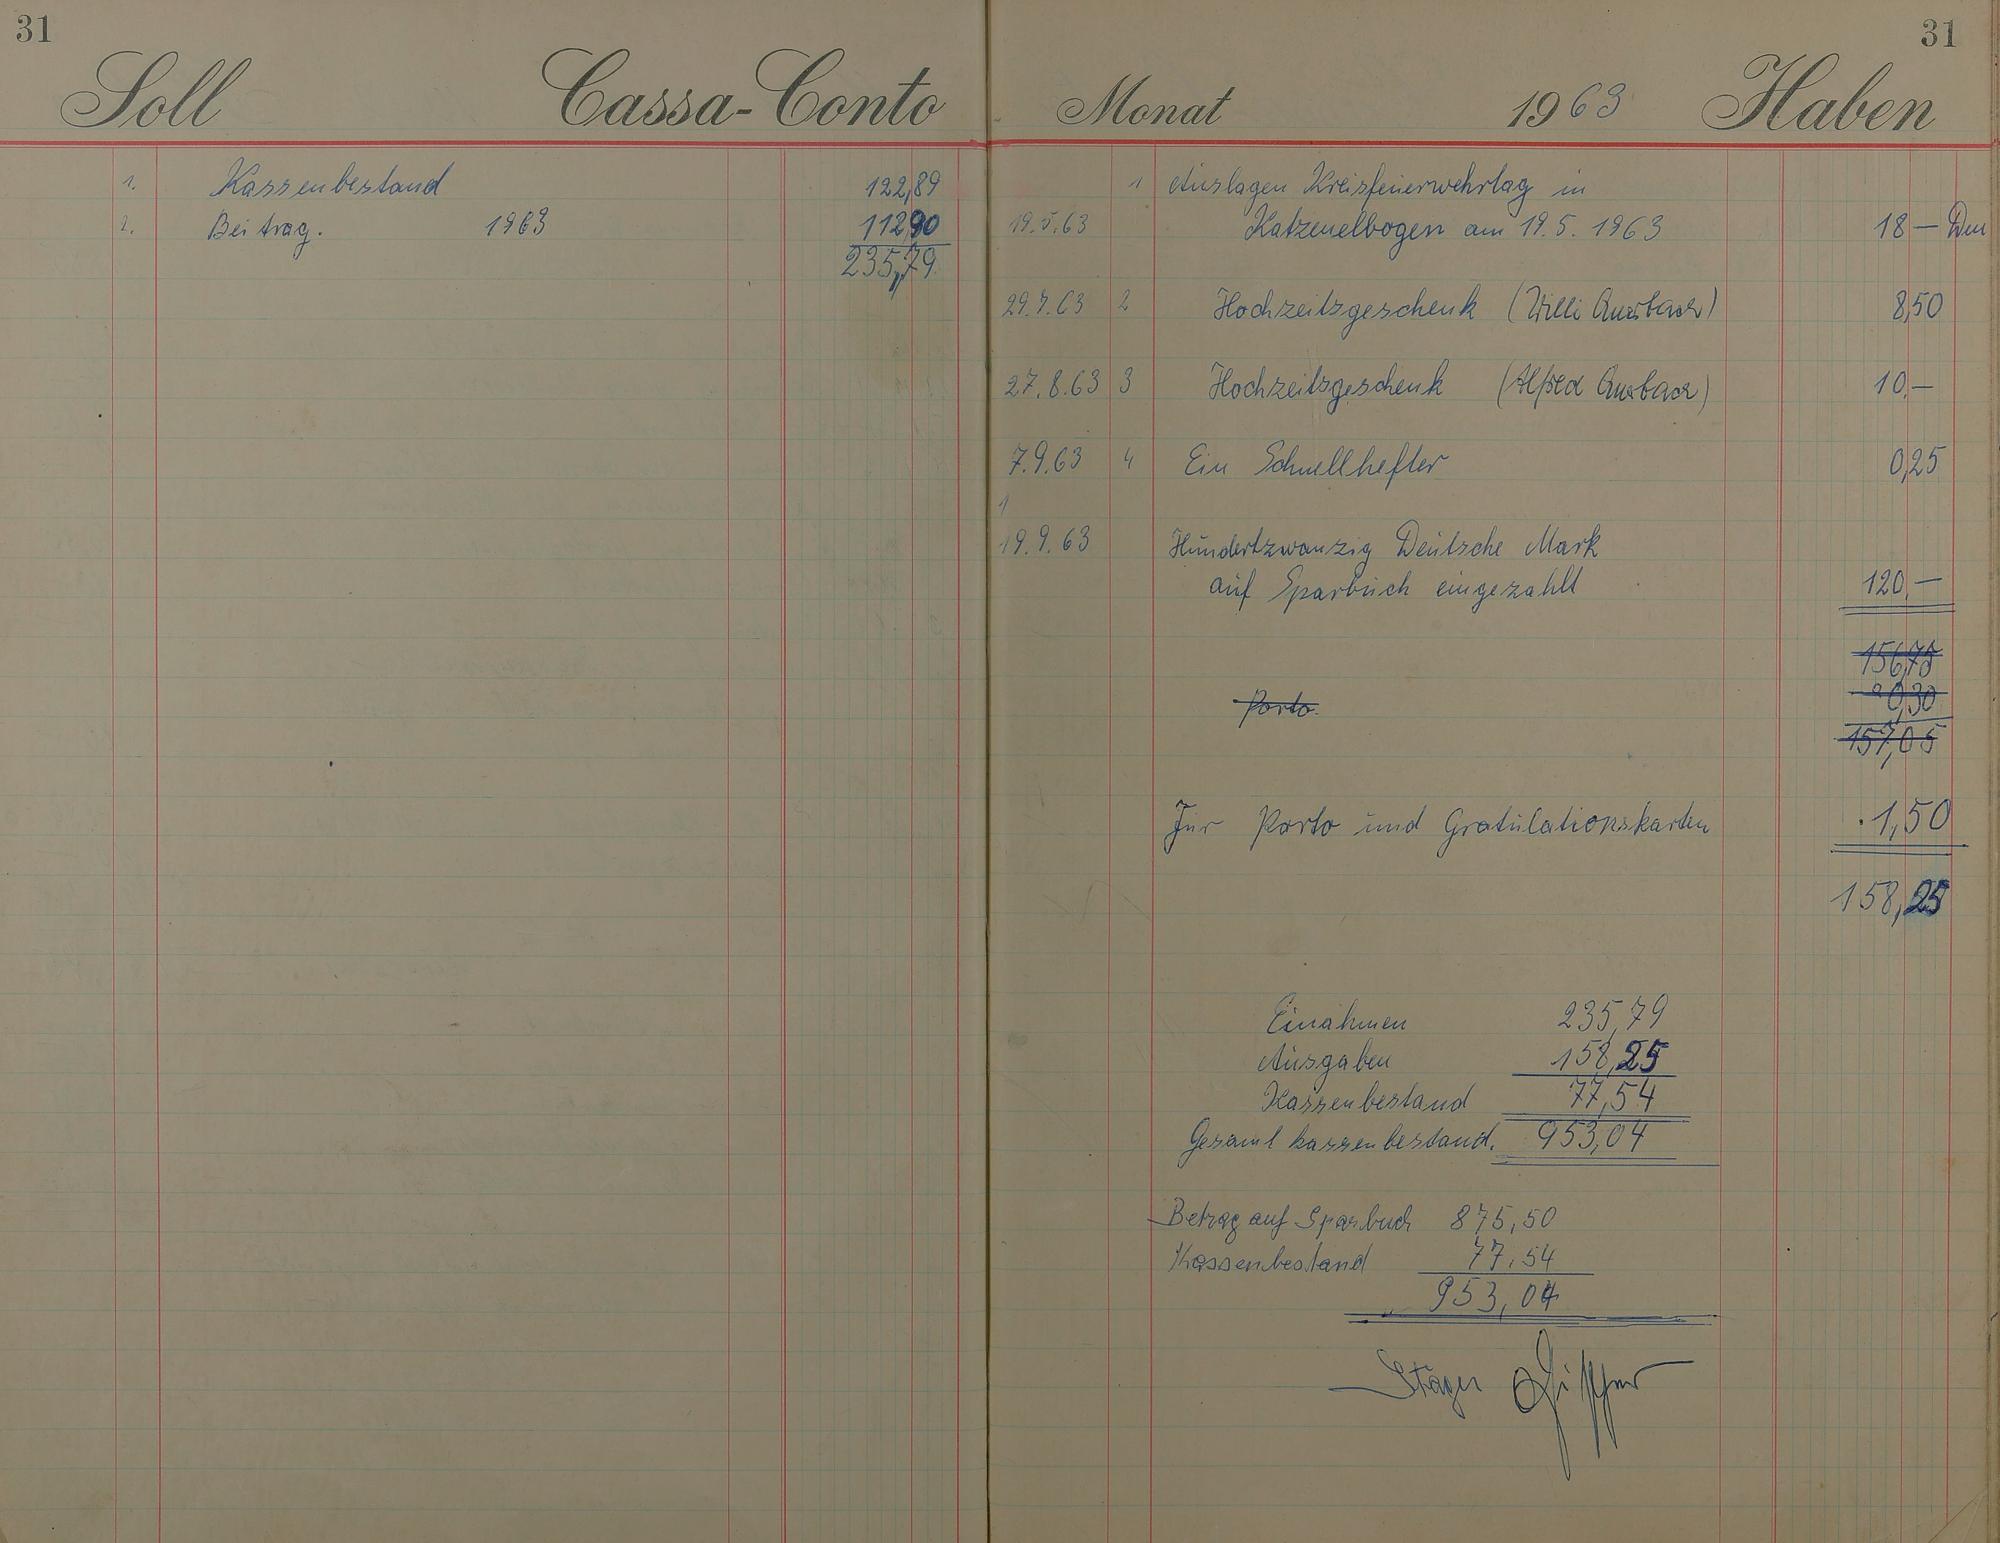 31
Soll Cassa-Conto
1. Kassenbestand 122,89
2. Beitrag. 1963 112,90
235,79
31
Monat 1963 Haben
1 Auslagen Kreisfeuerwehrtag in
19.5.63 Katzenelbogen am 19.5.1963 18 — Dm
29.7.63 2 Hochzeitsgeschenk (Willi 8,50
27.8.63 3 Hochzeitsgeschenk (Alfred 10,—
7.9.63 4 Ein Schnellhefter 0,25
1
19.9.63 Hundertzwanzig Deutsche Mark
auf Sparbuch eingezahlt 120,—
156,75
Porto. 0,30
157,05
Für Porto und Gratulationskarten 1,50
158,25
Einahmen 235,79
Ausgaben 158,25
Kassenbestand 77,54
Gesamtkassenbestand. 953,04
Betrag auf Sparbuch 875,50
Kassenbestand 77,54
953,04